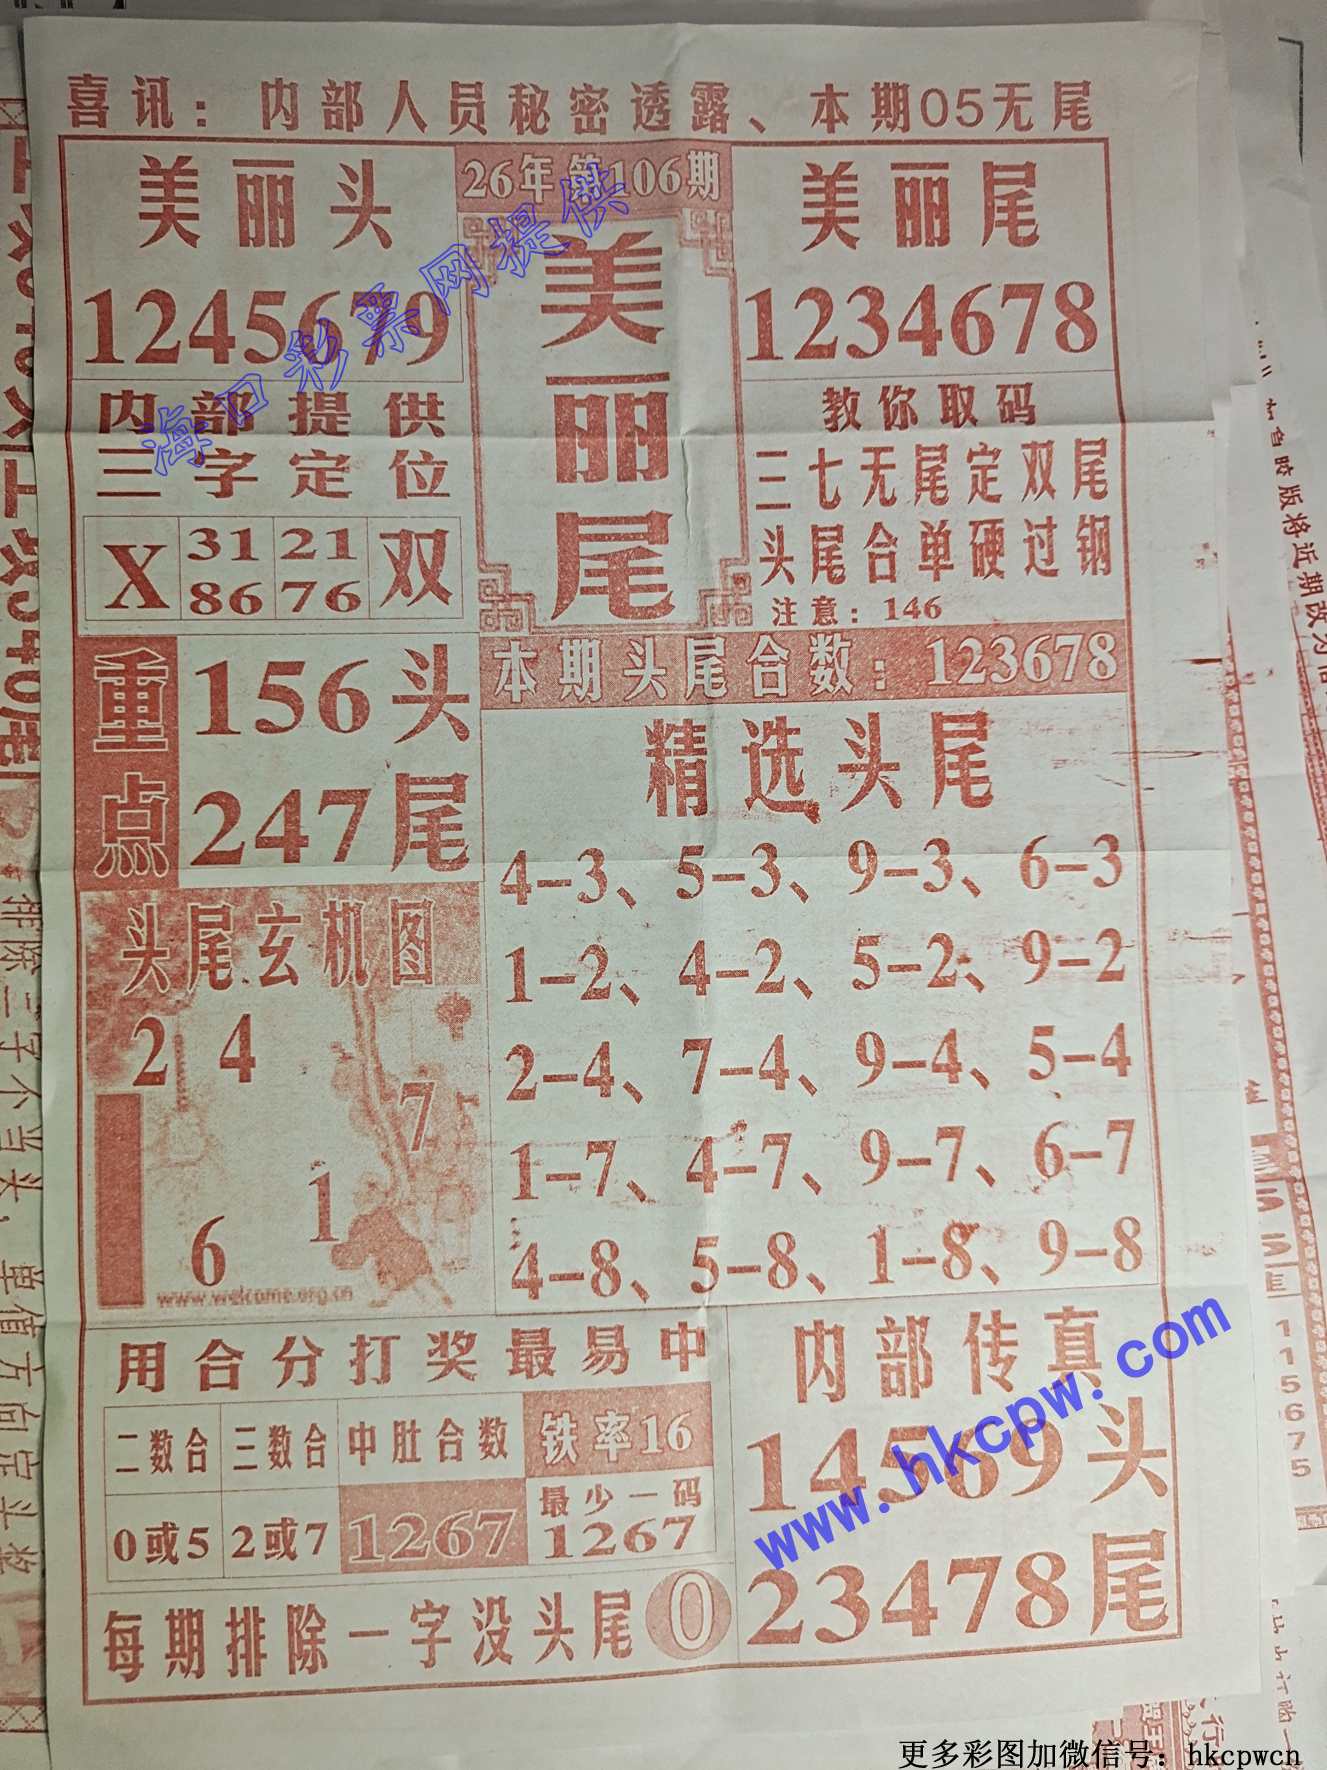 喜讯：内部人员秘密透露、本期05无尾
美丽头
1245679
26年第106期
美丽尾
美丽尾
1234678
海口彩票网提供
内部提供
三字定位
X 31 21 双
86 76
教你取码
三七无尾定双尾
头尾合单硬过钢
注意：146
重点
156头
247尾
本期头尾合数：123678
精选头尾
4-3、5-3、9-3、6-3
1-2、4-2、5-2、9-2
2-4、7-4、9-4、5-4
1-7、4-7、9-7、6-7
4-8、5-8、1-8、9-8
头尾玄机图
2 4
7
1
6
www.welcome.org.cn
用合分打奖最易中
二数合 三数合 中肚合数 铁率16
0或5 2或7 1267 最少一码
1267
每期排除一字没头尾 0
内部传真
14569头
23478尾
www.hkcpw.com
更多彩图加微信号：hkcpwcn